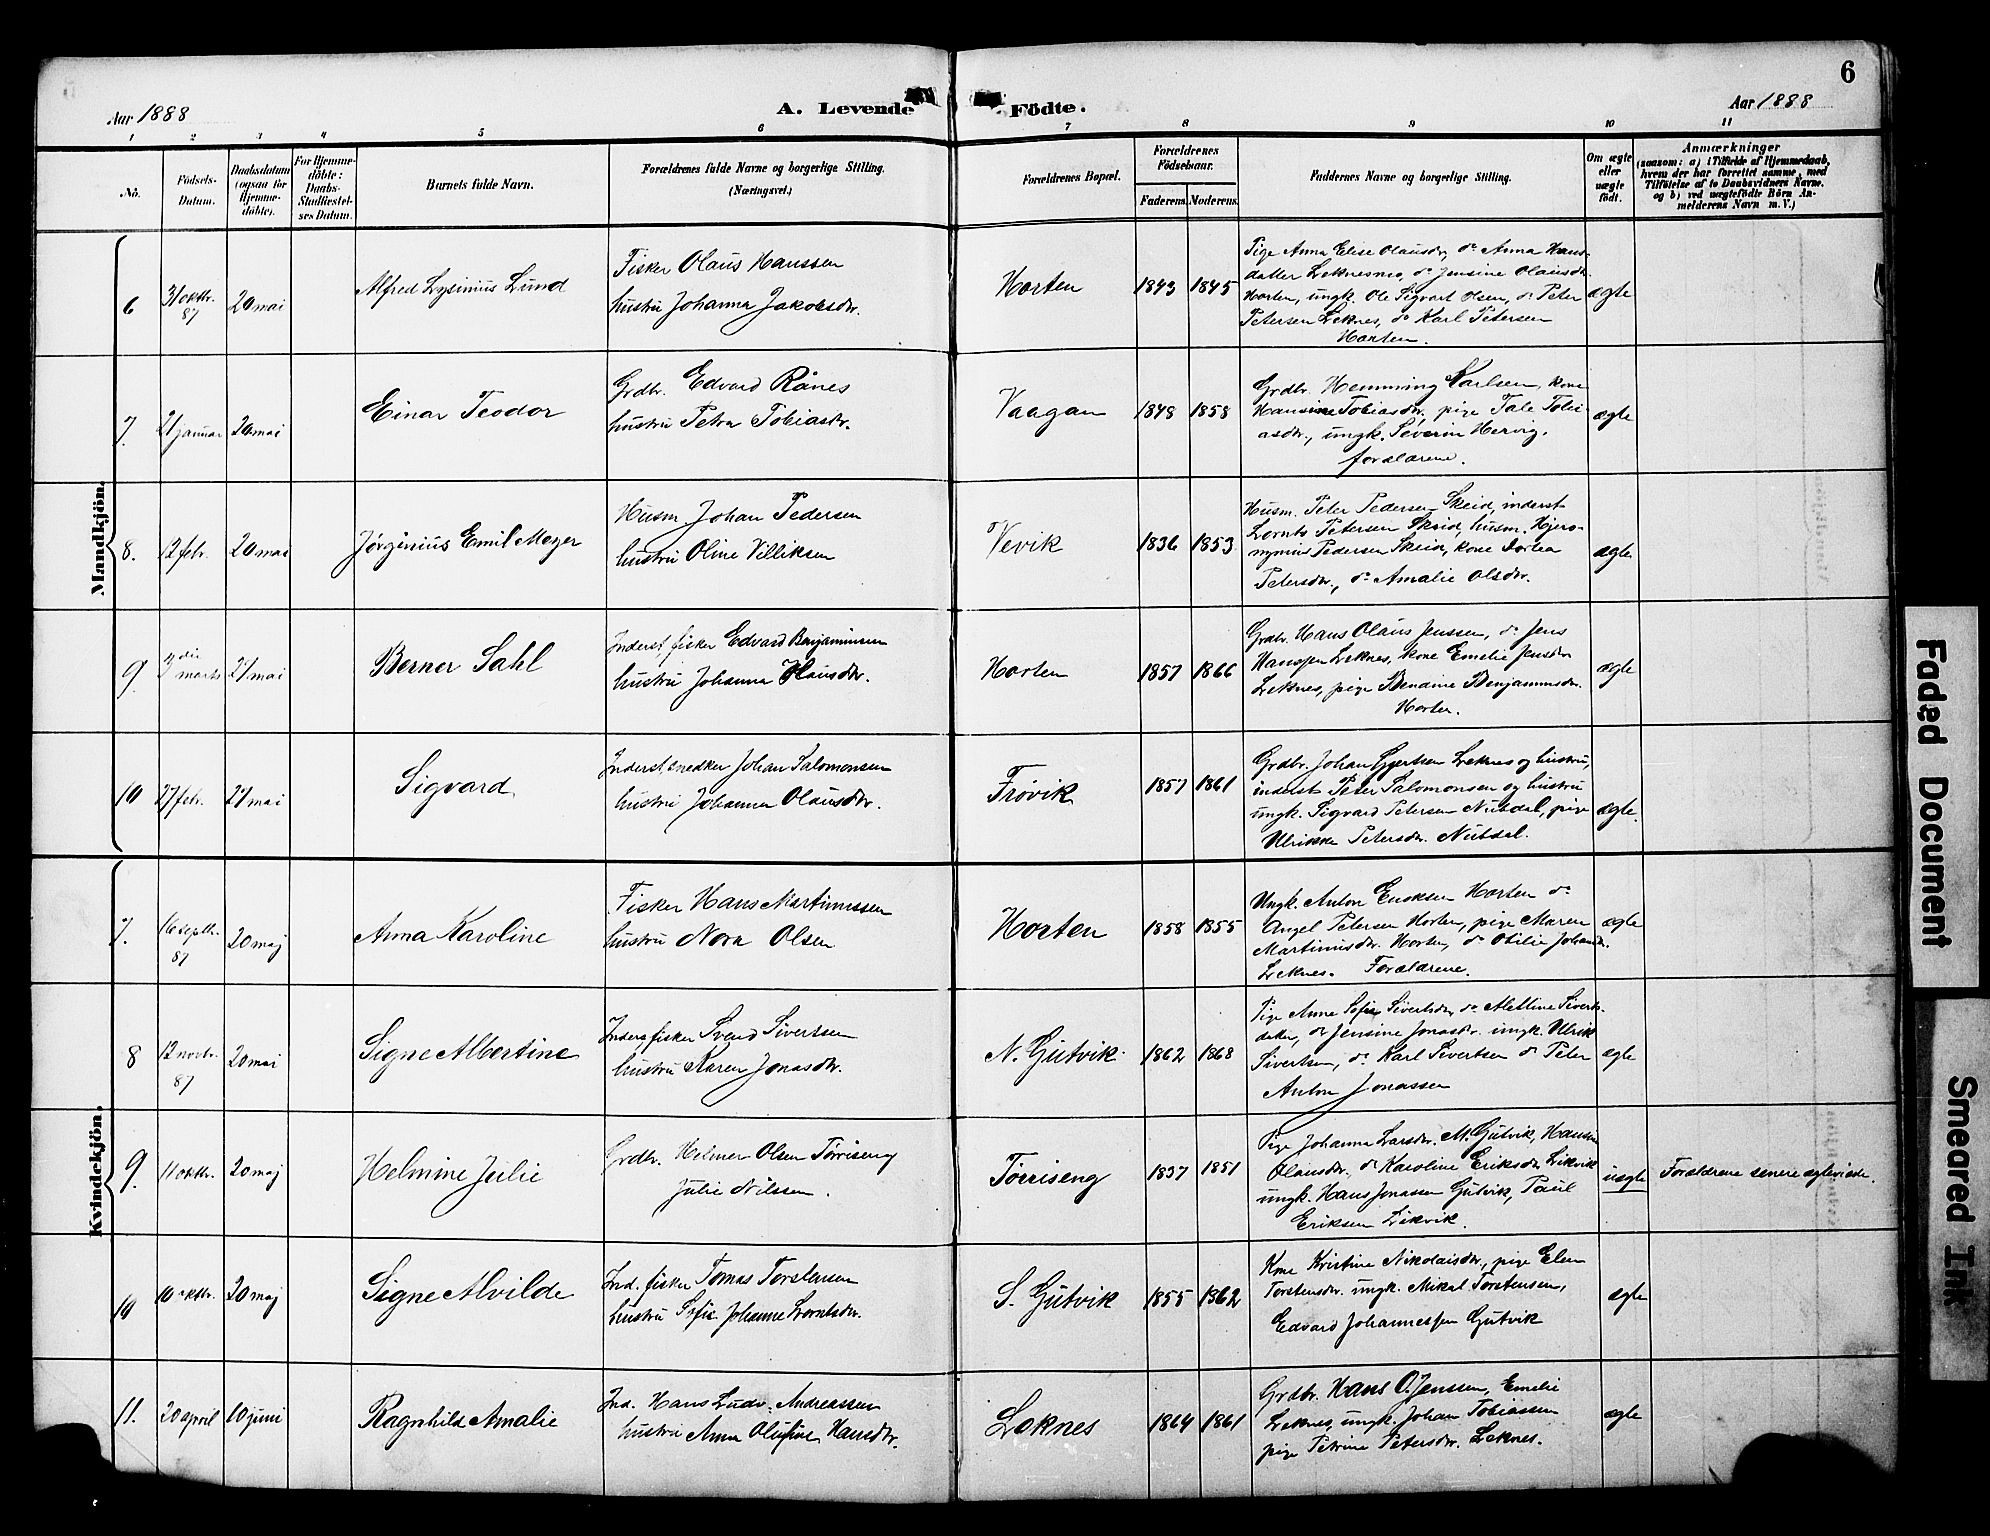 6
Aar 1888
A. Levende Födte.
Aar 1888
1 2 3 4 5 6 7 8 9 10 11
No.
Födsels-Datum.
Daabsdatum (ogsaa for Hjemme-döbte).
For Hjemme-döbte: Daabs-Stadfæstel-ses Datum.
Barnets fulde Navn.
Forældrenes fulde Navne og borgerlige Stilling. (Næringsvei.)
Forældrenes Bopæl.
Forældrenes Födselsaar.
Faderens. Moderens.
Faddernes Navne og borgerlige Stilling.
Om ægte eller uægte født.
Anmærkninger
(saasom: a) i Tilfælde af Hjemmedaab, hvem der har forrettet samme, med Tilföielse af to Daabsvidners Navne, og b) ved uægtefödte Börn Anmelderens Navn m. V.)
Mandkjön.
6 31 oktbr. 87 20 mai Alfred Lysinius Lund
Fisker Olaus Hanssen
hustru Johanna Jakobsdtr.
Horten 1843 1845
Pige Anna Elise Olausdtr, do Anna Hans-
datter Leknesmo, do Jensine Olausdtr.
Horten, ungk. Ole Sigvart Olsen, do Peter
Petersen Leknes, do Karl Petersen
Horten.
ægte
7. 21 januar 20 mai Einar Teodor
Grdbr. Edvard Rånes
hustru Petra Tobiasdtr.
Vaagan 1848 1858
Grdbr. Hemming Karlsen, kone
Hansine Tobiasdtr, pige Tale Tobi-
asdtr., ungk. Severin Hervig.
forældrene.
ægte
8. 12 febr. 20 mai Jørginius Emil Meyer
Husm. Johan Pedersen
hustru Oline Villiksen
Vevik 1836 1853
Husm. Peter Pedersen Skeid, inderst
Lornts Petersen Skeid, husm. Hjero-
nymus Pedersen Skeid, kone Dortea
Petersdtr., do Amalie Olsdtr.
ægte
9. 3die marts 21 mai Berner Sahl
Inderst, fisker Edvard Benjaminsen
hustru Johanna Olausdtr.
Horten 1857 1866
Grdbr. Hans Olaus Jenssen, do Jens
Hanssen Leknes, kone Emelie Jensdtr
Leknes, pige Bendine Benjaminsdtr.
Horten.
ægte
10 27 febr. 21 mai Sigvard
Inderst, snedker Johan Salomonsen
hustru Johanna Olausdtr.
Frøvik 1857 1861
Grdbr. Johan Gjertsen Leknes og hustru,
inderst Peter Salomonsen og hustru
ungk. Sigvard Petersen Nubdal, pige
Ulrikke Petersdtr. Nubdal.
ægte.
Kvindekjön.
7. 16 septbr. 87 20 maj Anna Karoline
Fisker Hans Martinussen
hustru Nora Olsen
Horten 1858 1855
Ungk. Anton Enoksen Horten do
Angel Petersen Horten, pige Maren
Martinusdtr. Horten, do Otilie Johansdtr.
Leknes. Forældrene.
ægte
8 12 novbr. 87 20 mai Signe Albertine
Inders. fisker Svend Sivertsen
hustru Karen Jonasdtr.
N. Gutvik. 1862 1868
Pige Anne Sofie Sivertsdtr, do Alettine Siverts-
datter, do Jensine Jonasdtr. ungk. Ulrik
Sivertsen, do Karl Sivertsen do Peter
Anton Jonassen
ægte
9. 11 oktbr. 20 maj Helmine Julie
Grdbr. Helmer Olsen Tørriseng
Julie Nilssen.
Tørriseng 1837 1851
Pige Johanna Larsdtr. M. Gutvik, Hansine
Olausdtr. do Karoline Eriksdtr Lekvik
ungk. Hans Jonassen Gutvik, Paul
Eriksen Lekvik.
uægte
Forældrene senere ægteviede.
10 10 oktbr. 20 maj Signe Alvilde
Ind. fisker Tomas Torstensen
hustru Sofie Johanne Lorntsdtr.
S. Gutvik 1855 1862
Kone Kristine Nikolaisdtr, pige Elen
Torstensdtr. ungk. Mikal Torstensen,
Edvard Johannessen Gutvik
ægte
11. 20 april 10 juni Ragnhild Amalie
Ind. Hans Ludv. Andreassen
hustru Anna Olufine Hansdtr.
Leknes 1864 1861
Grdbr. Hans O. Jenssen, Emelie
Leknes, ungk. Johan Tobiassen
pige Petrine Petersdtr. Leknes.
ægte
Faded Document
Smeared Ink